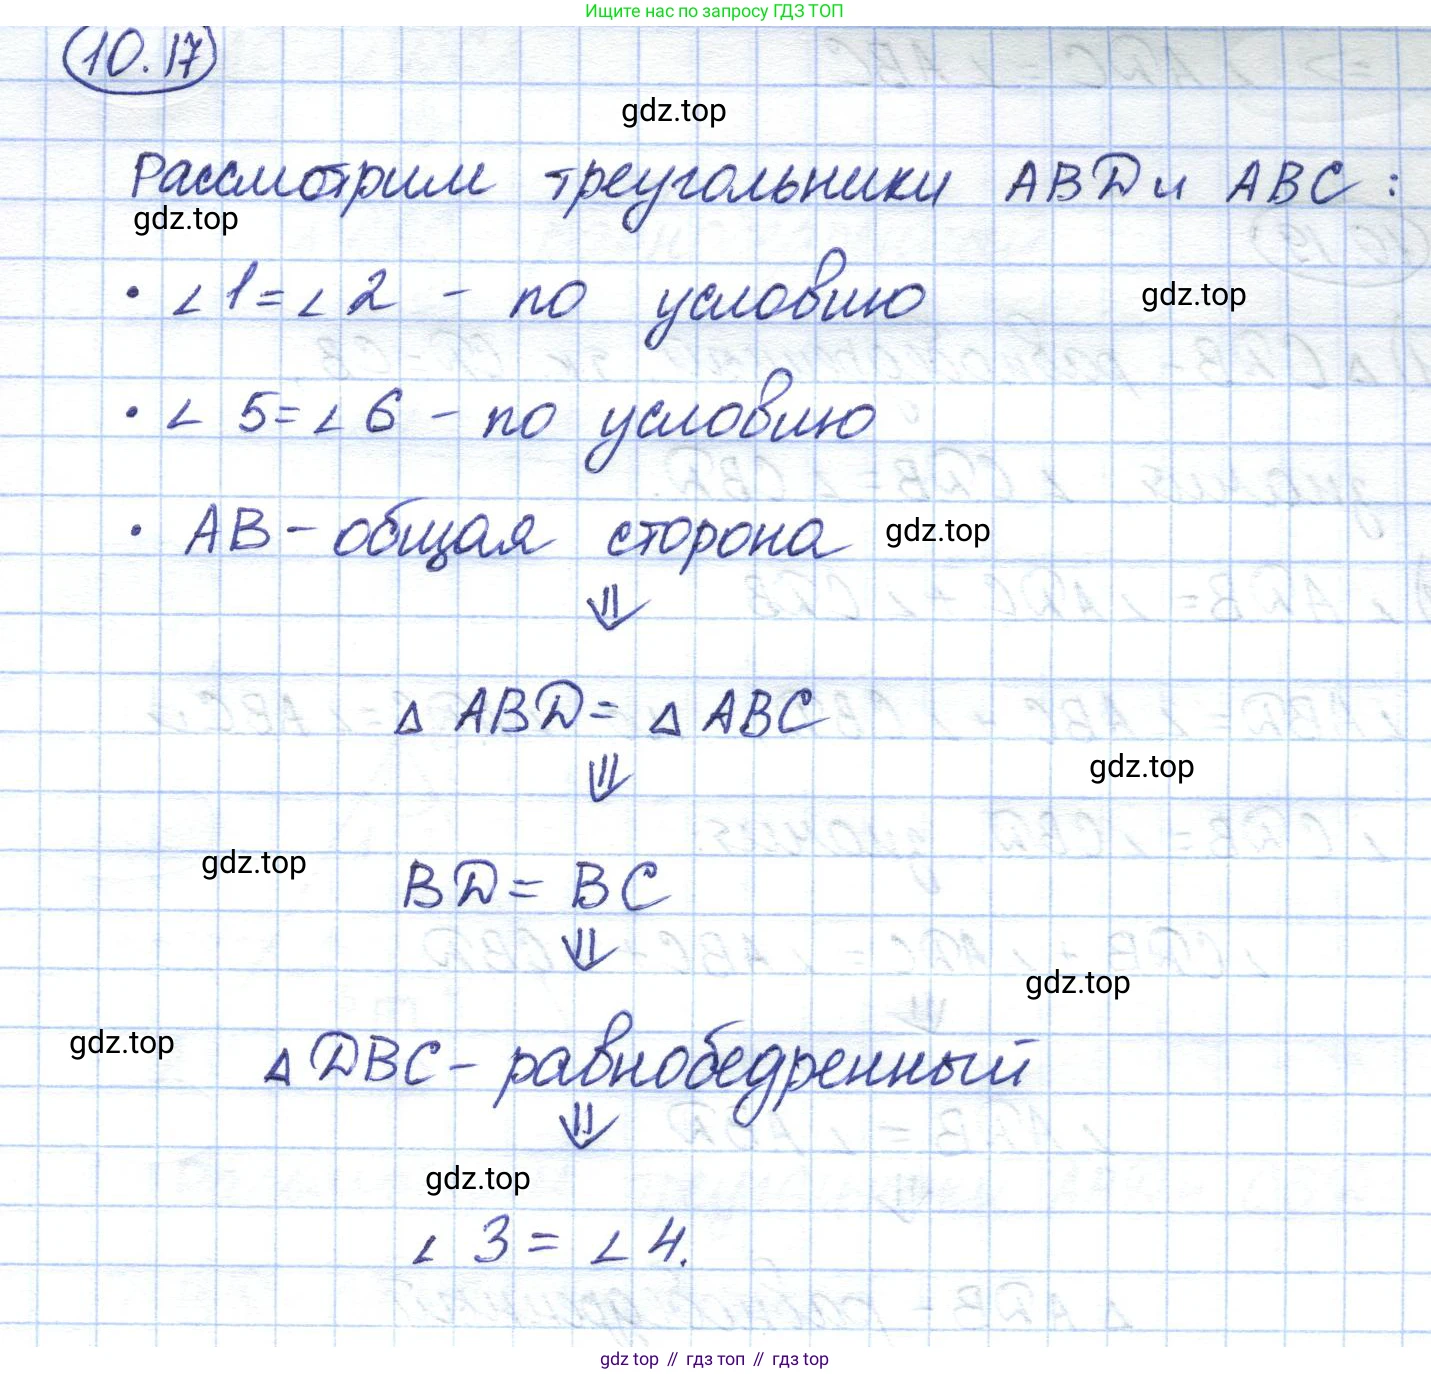 Ищите нас по запросу ГДЗ ТОП
10.17
gdz.top
Рассмотрим треугольники ABD и ABC :
gdz.top
• ∠1 = ∠2 – по условию
gdz.top
• ∠5 = ∠6 – по условию
• AB – общая сторона
gdz.top
⇓
△ ABD = △ ABC
⇓
gdz.top
gdz.top
BD = BC
⇓
gdz.top
gdz.top
△ DBC – равнобедренный
⇓
gdz.top
∠3 = ∠4.
gdz top // гдз топ // гдз top